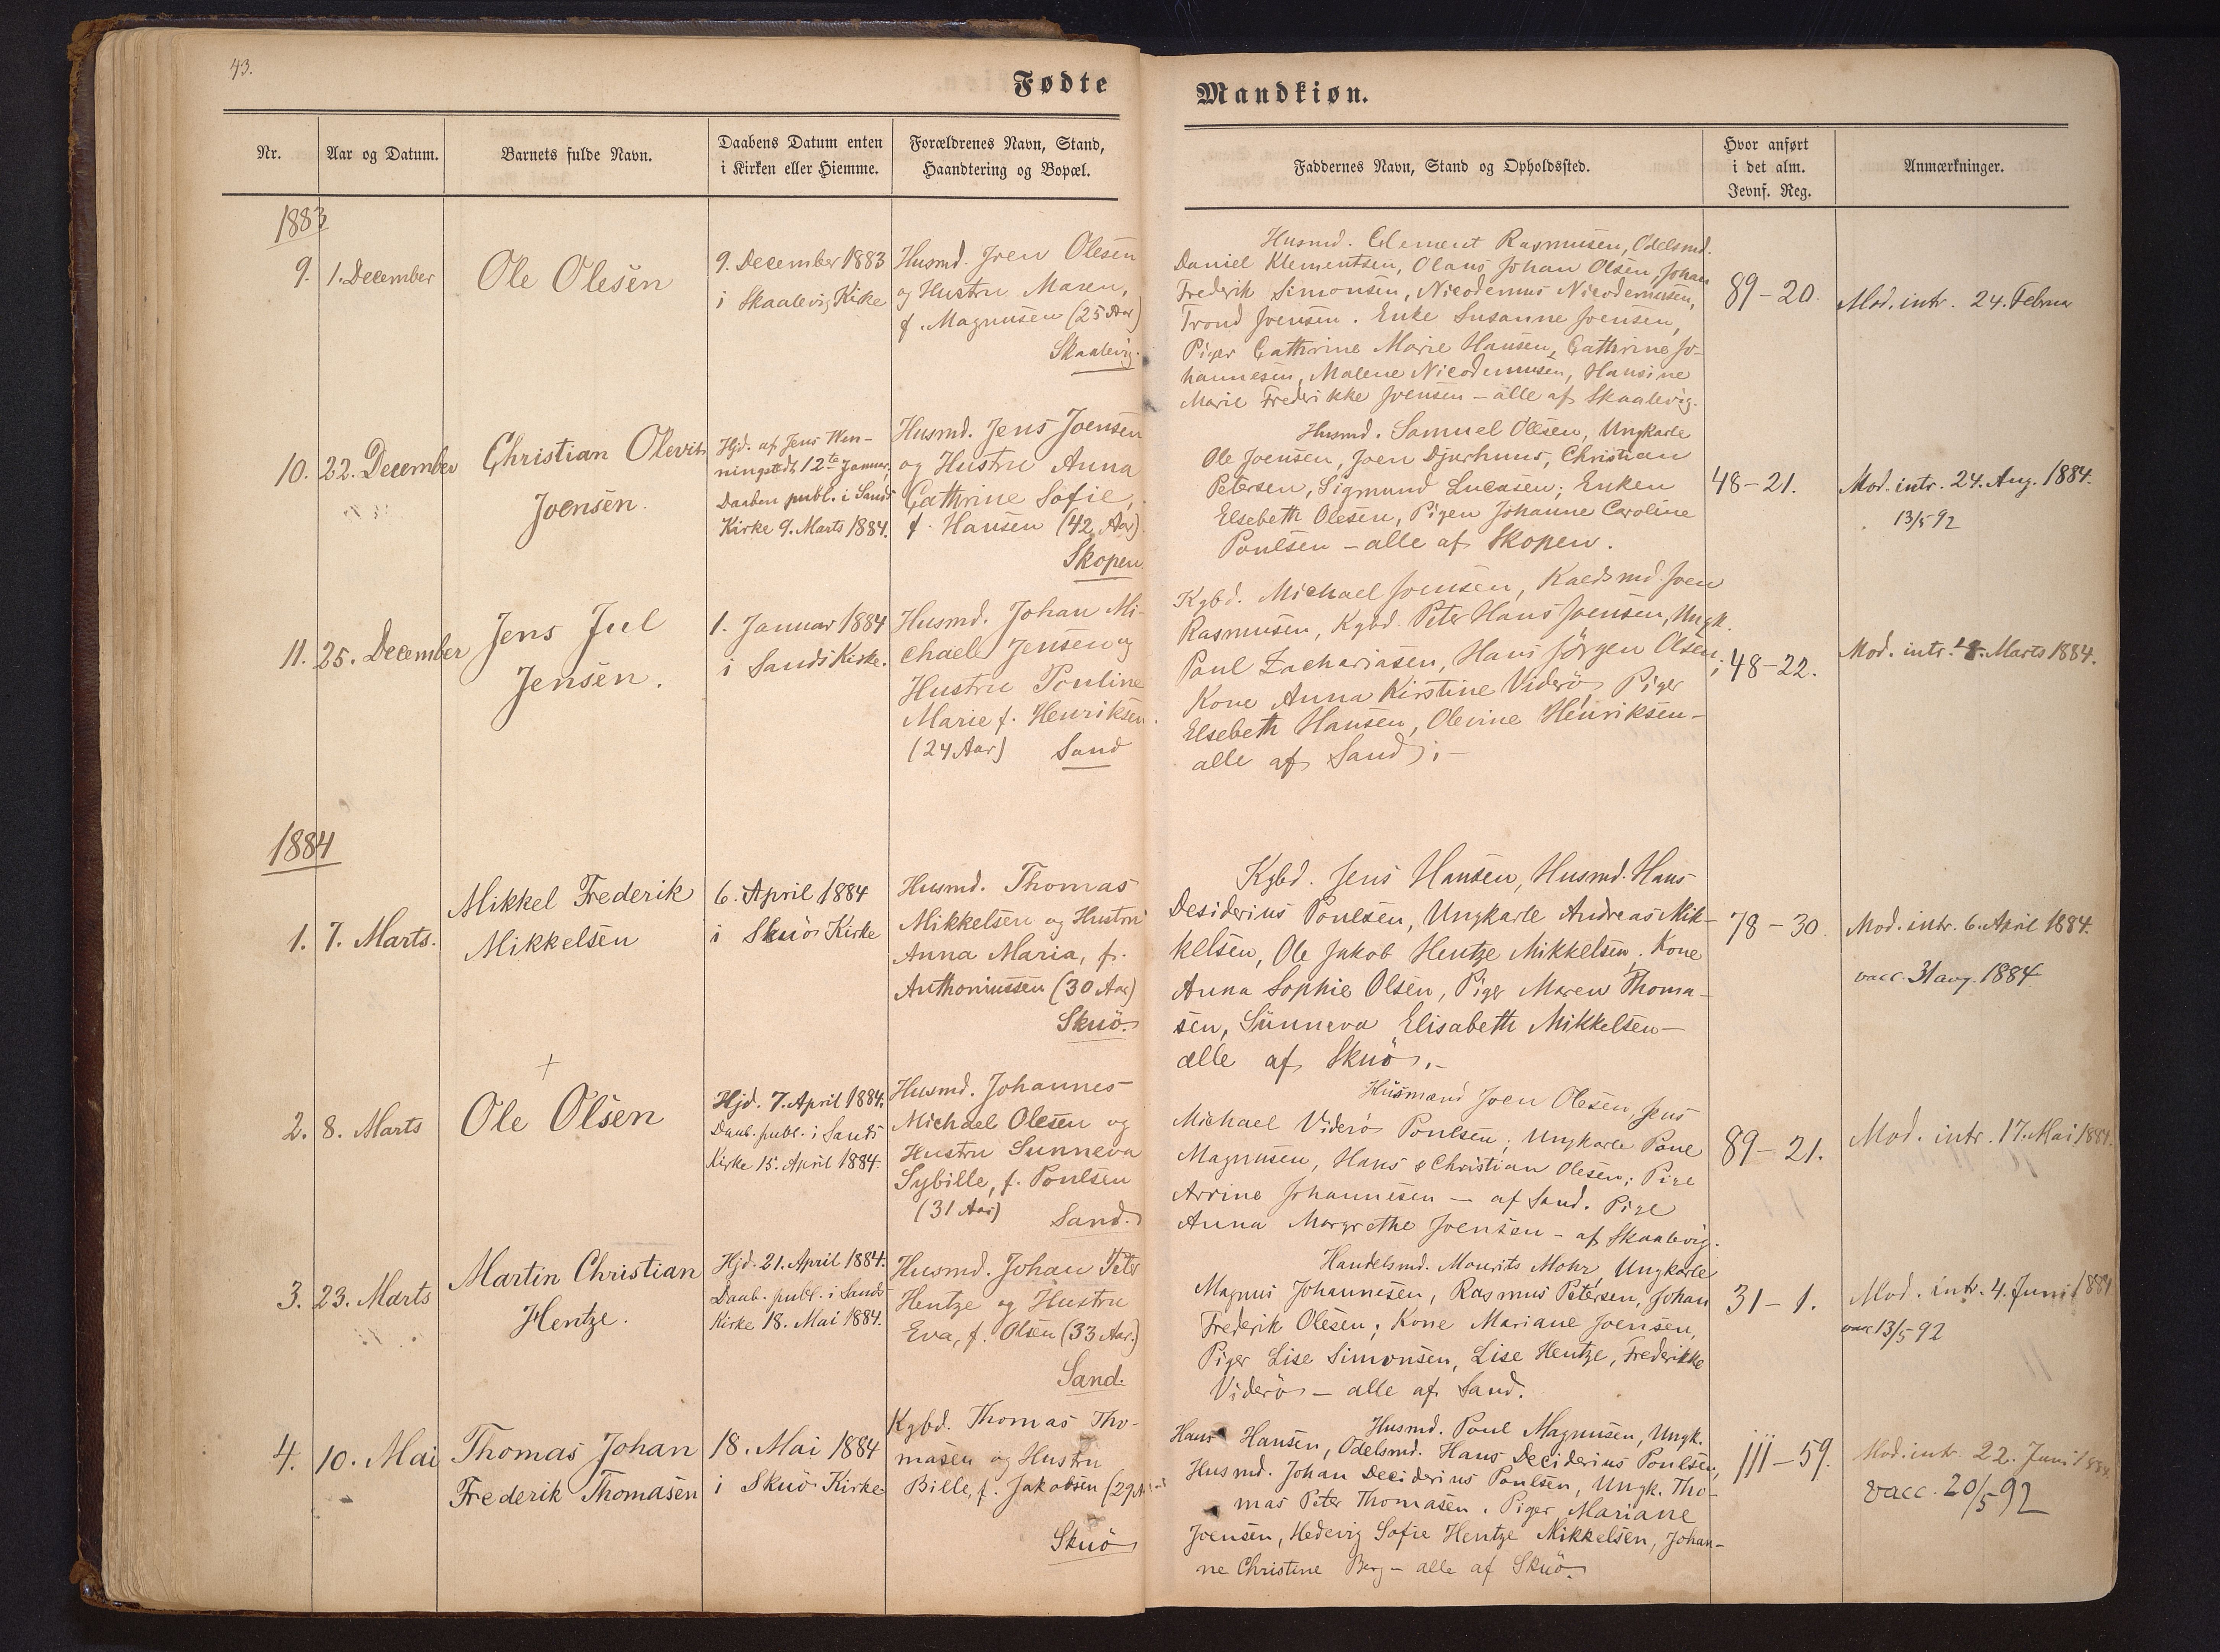 43.
Fødte
Mandkiøn.
Nr.
Aar og Datum.
Barnets fulde Navn.
Daabens Datum enten
i Kirken eller Hiemme.
Forældrenes Navn, Stand,
Haandtering og Bopæl.
Faddernes Navn, Stand og Opholdssted.
Hvor anført
i det alm.
Jevnf. Reg.
Anmærkninger.
1883
9.
1. December
Ole Olesen
9. December 1883
i Skaalevig Kirke
Husmd. Joen Olesen
og Hustru Maren,
f. Magnusen (25 Aar)
Skaalevig.
Husmd. Clement Rasmusen, Odelsmd.
Daniel Klementsen, Olaus Johan Olsen, Johan
Frederik Simonsen, Nicodemus Nicodemusen,
Trond Joensen. Enke Susanne Joensen,
Piger Cathrine Marie Hansen, Cathrine Jo-
hannesen, Malene Nicodemusen, Hansine
Marie Frederikke Joensen – alle af Skaalevig.
89–20.
Mod. intr. 24. Februar
10.
22. December
Christian Olevius
Joensen.
Hjd. af Jens Wen-
ningstedt, 12te Januar,
Daaben publ. i Sands
Kirke 9. Marts 1884.
Husmd. Jens Joensen
og Hustru Anna
Cathrine Sofie,
f. Hansen (42 Aar)
Skopen.
Husmd. Samuel Olesen, Ungkarle
Ole Joensen, Joen Djurhuus, Christian
Petersen, Sigmund Lucasen; Enken
Elsebeth Olesen, Pigen Johanne Caroline
Poulsen – alle af Skopen.
48–21.
Mod. intr. 24. Aug. 1884.
13/5 92
11.
25. December
Jens Jul
Jensen.
1. Januar 1884
i Sands Kirke.
Husmd. Johan Mi-
chael Jensen og
Hustru Pouline
Marie f. Henriksen.
(24 Aar) Sand
Kgbd. Michael Joensen, Joen
Rasmusen, Kgbd. Peter Hans Joensen, Ungk.
Paul Zachariasen, Hans Jörgen Olsen;
Kone Anna Kirstine Viderö, Piger
Elsebeth Hansen, Olevine Henriksen –
alle af Sand;–
48–22.
Mod. intr. Marts 1884.
1884
1.
7. Marts.
Mikkel Frederik
Mikkelsen
6. April 1884
i Skuö Kirke
Husmd. Thomas
Mikkelsen og Hustru
Anna Maria, f.
Anthoniussen (30 Aar)
Skuö.
Kgbd. Jens Hansen, Husmd. Hans
Desiderius Poulsen, Ungkarle Andreas Mik-
kelsen, Ole Jakob Hentze Mikkelsen, Kone
Anna Sophie Olsen, Piger Maren Thoma-
sen, Sünneva Elisabeth Mikkelsen –
alle af Skuö.–
78–30.
Mod. intr. 6. April 1884.
vacc. 31 aug. 1884
+
2.
8. Marts
Ole Olsen
Hjd. 7. April 1884.
Daab. publ. i Sands
Kirke 15. April 1884.
Husmd. Johannes
Michael Olesen og
Hustru Sunneva
Sybille, f. Poulsen
(31 Aar) Sand.
Husmand Joen Olesen, Jens
Michael Viderö Poulsen; Ungkarle Poul
Magnusen, Hans Christian Olesen; Pige
Arrine Johannesen – af Sand. Pige
Anna Margrethe Joensen – af Skaalevig.
89–21.
Mod. intr. 17. Mai 1884.
3.
23. Marts
Martin Christian
Hentze.
Hjd. 21. April 1884.
Daab. publ. i Sands
Kirke 18. Mai 1884.
Husmd. Johan Peter
Hentze og Hustru
Eva, f. Olsen (33 Aar.)
Sand.
Handelsmd. Mourits Mohr, Ungkarle
Magnus Johannesen, Rasmus Petersen, Johan
Frederik Olesen; Kone Mariane Joensen,
Piger Lise Simonsen, Lise Hentze, Frederikke
Viderö – alle af Sand.
31–1.
Mod. intr. 4. Juni 1884
vacc 13/5 92
4.
10. Mai
Thomas Johan
Frederik Thomasen
18. Mai 1884
i Skuö Kirke
Kgbd. Thomas Tho-
masen og Hustru
Bille, f. Jakobsen (29 Aar)
Skuö
Husmd. Poul Magnusen, Ungk.
Hans Hansen, Odelsmd. Hans Deciderius Poulsen,
Husmd. Johan Deciderius Poulsen, Ungk. Tho-
mas Peter Thomasen. Piger Mariane
Joensen, Hedevig Sofie Hentze Mikkelsen, Johan-
ne Christine Berg – alle af Skuö.
111–59.
Mod. intr. 22. Juni 1884.
vacc. 20/5 92